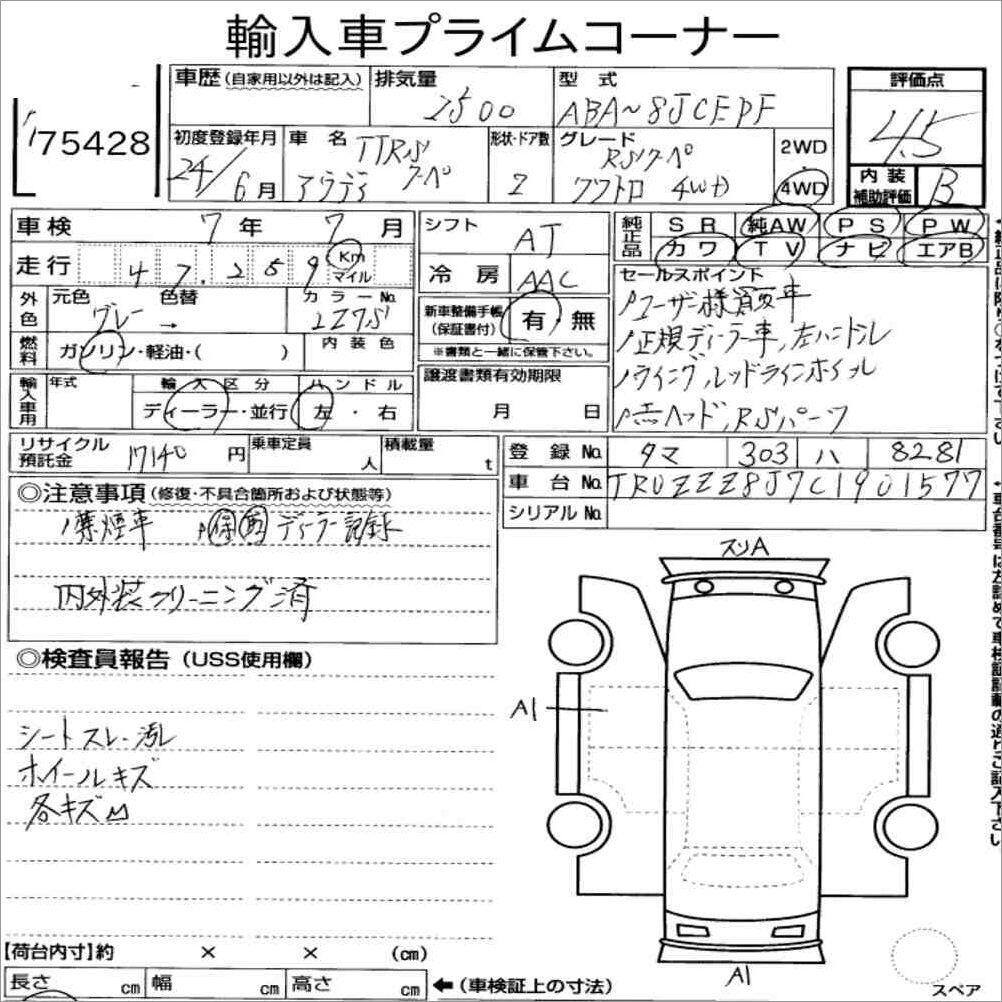 輸入車プライムコーナー
75428
車歴 (自家用以外は記入)
排気量
2500
型式
ABA~8JCEPF
評価点
4.5
初度登録年月
24/6月
車名
TTRS
クーペ
アウディ
形状・ドア数
2
グレード
RSクーペ
クワトロ 4WD
2WD
4WD
内装
補助評価
B
車検 7年 7月
シフト AT
純正品
SR 純AW PS PW
カワ TV ナビ エアB
走行 47.259 Km
マイル
冷房 AAC
外色
元色 色替 カラーNo.
グレー → LZ7S
新車整備手帳
(保証書付)
有・無
※書類と一緒に保管下さい。
燃料
ガソリン・軽油・( )
内装色
セールスポイント
ユーザー様買取車
正規ディーラー車, 左ハンドル
ウイング, レッドラインホイール
黒ヘッド, RSパーツ
輸入車用
年式
輸入区分 ハンドル
ディーラー・並行 左・右
譲渡書類有効期限
月 日
リサイクル
預託金
17140円
乗車定員
人
積載量
t
登録No. タマ 303 ハ 8281
車台No. TRUZZZ8J7C1901577
シリアルNo.
◎注意事項 (修復・不具合箇所および状態等)
禁煙車 ディーラー記録
内外装クリーニング済
◎検査員報告 (USS使用欄)
シートスレ・汚レ
ホイールキズ
各キズ凹
スリA
A1
A1
【荷台内寸】約 × × (cm)
長さ cm 幅 cm 高さ cm ← (車検証上の寸法)
スペア
↑車台番号は左詰めで車検証記載の通りご記入下さい